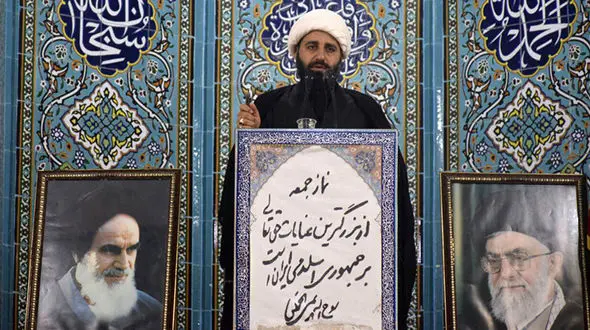 سبحان الله
الحمدلله
نماز جمعه
از بزرگترین عنایات حق تعالی
بر جمهوری اسلامی ایران است
روح الله الموسوی الخمینی